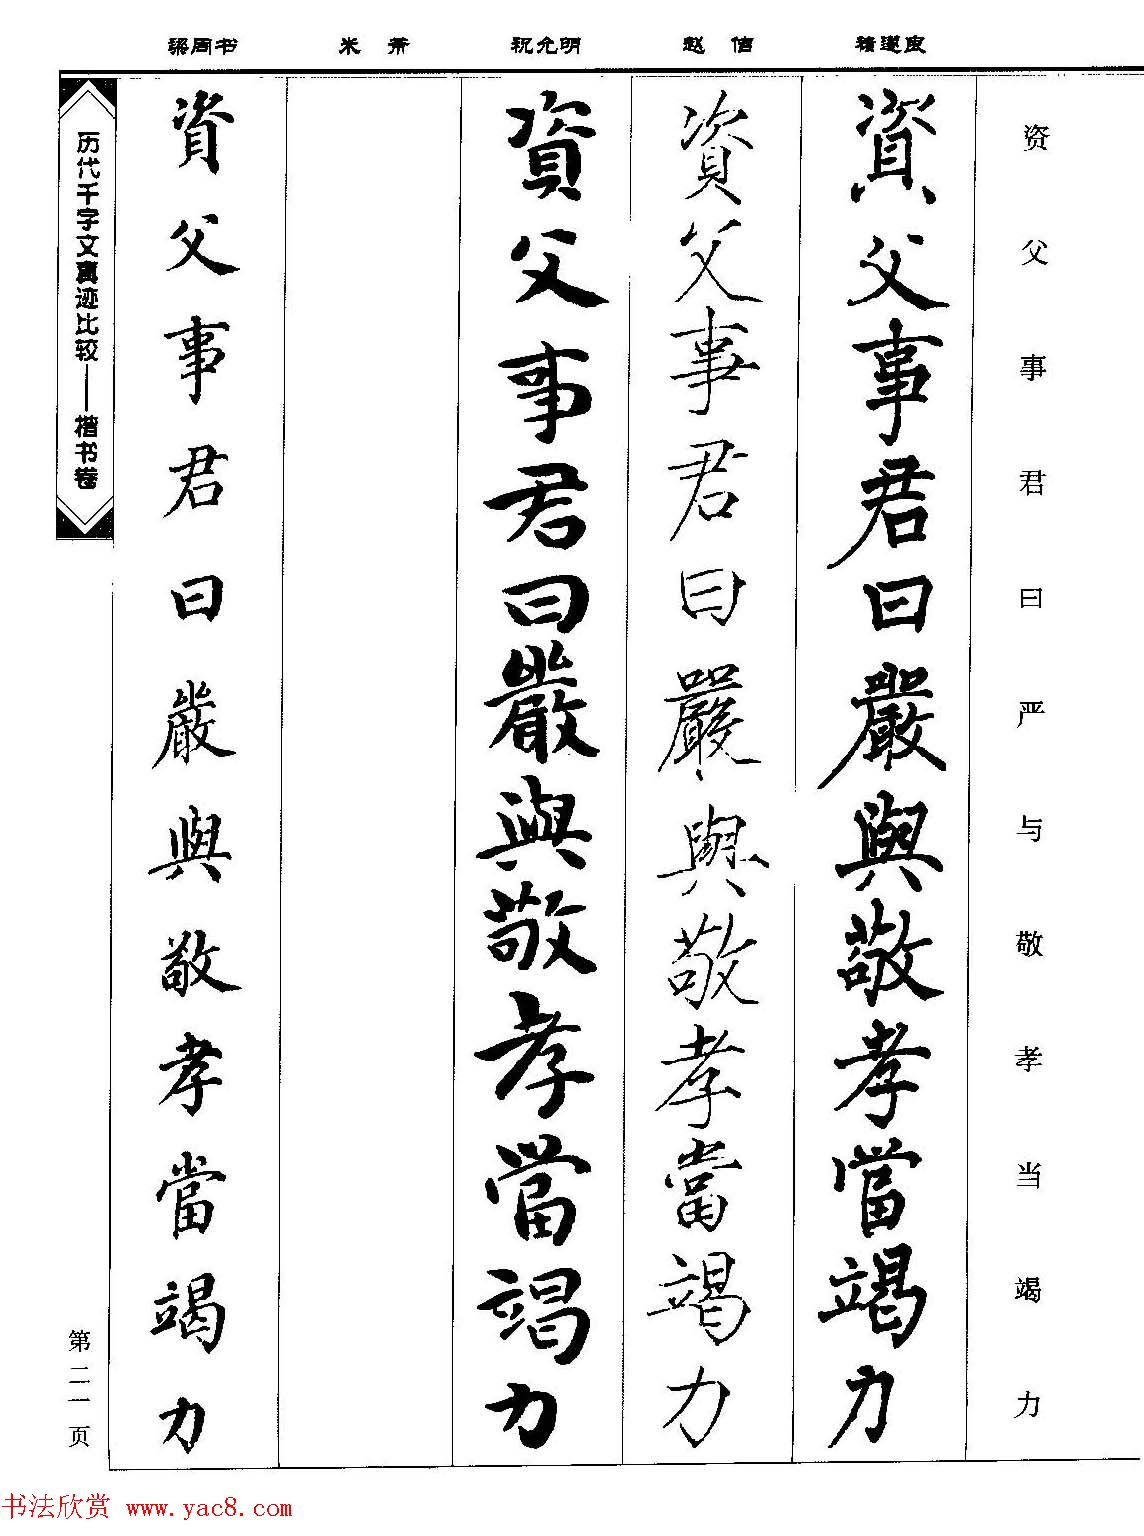 资父事君曰严与敬孝当竭力
褚遂良
資父事君曰嚴與敬孝當竭力
赵佶
資父事君曰嚴與敬孝當竭力
祝允明
資父事君曰嚴與敬孝當竭力
米芾
梁同书
資父事君曰嚴與敬孝當竭力
历代千字文真迹比较——楷书卷
第二一页
书法欣赏 www.yac8.com